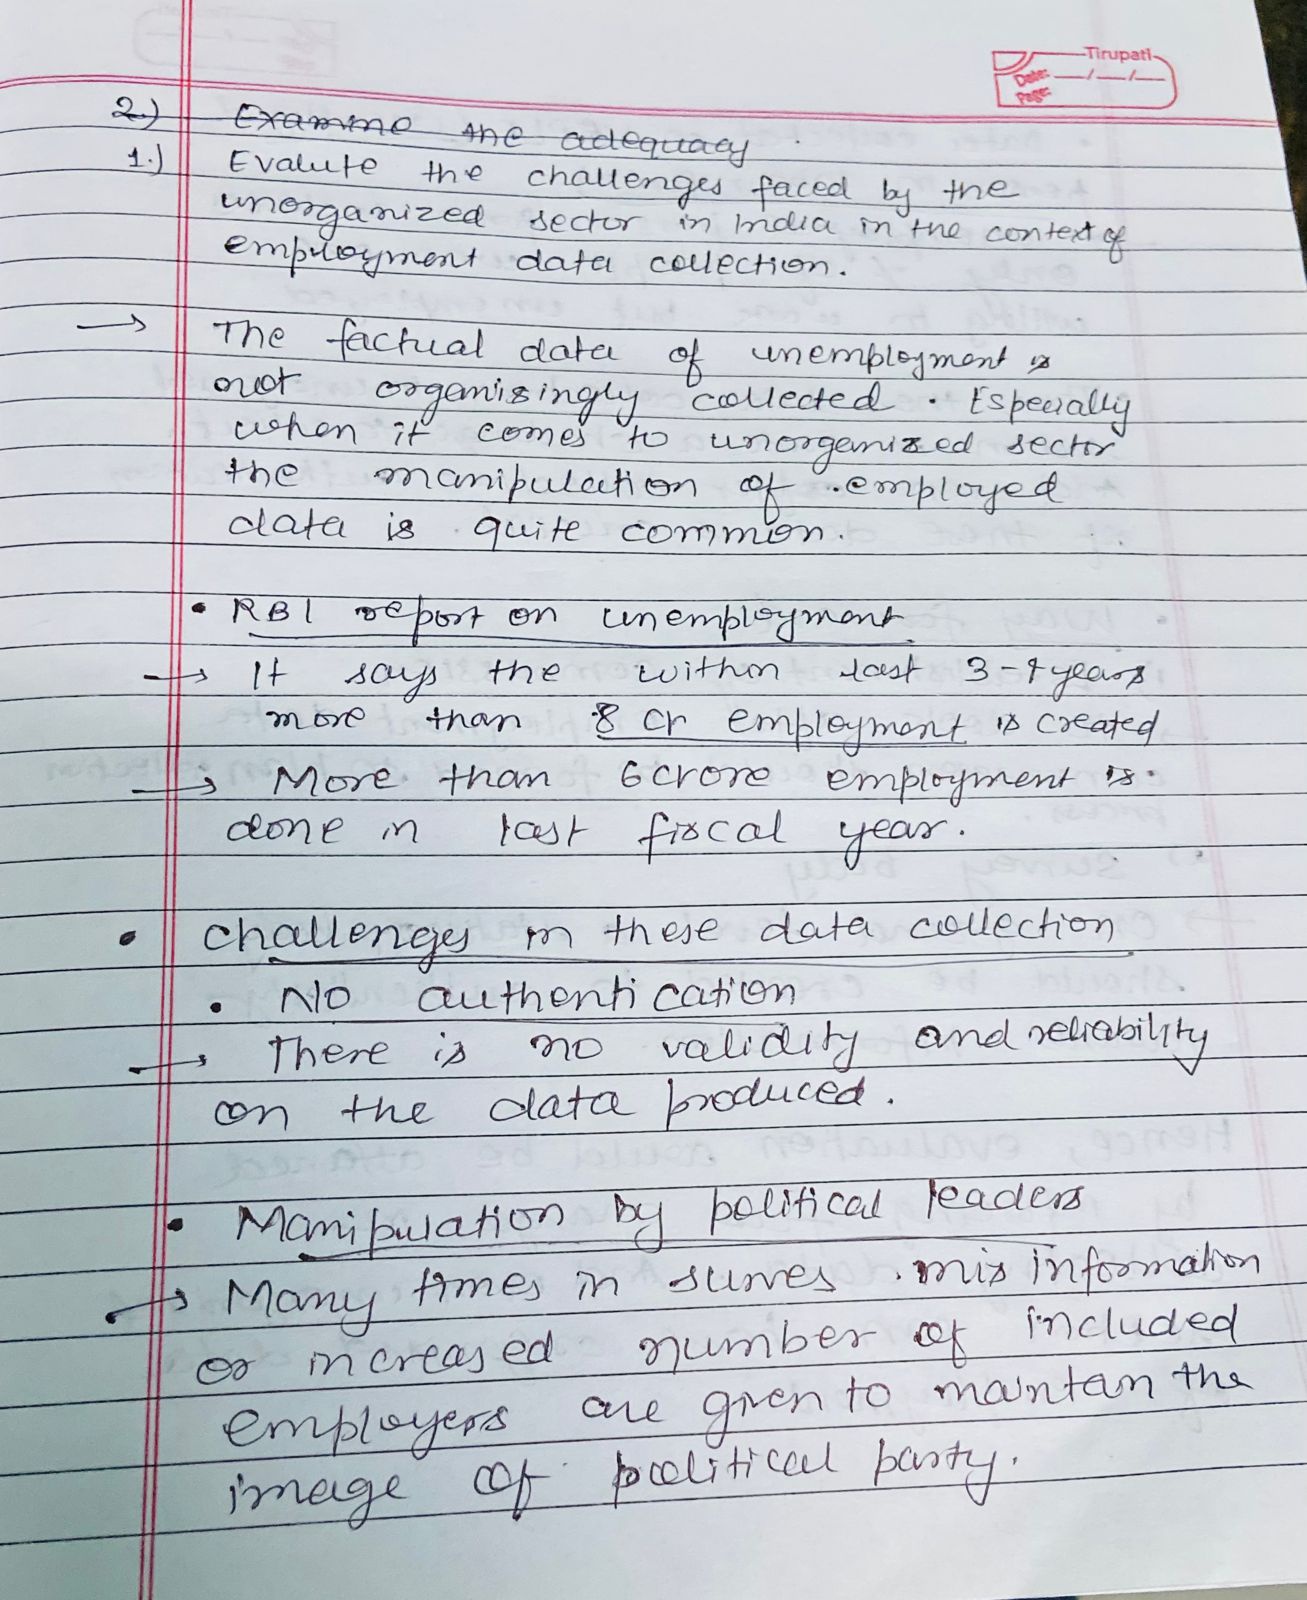 Tirupati
Date: __/__/__
Page:
2.) Examine the adequacy
1.) Evalute the challenges faced by the
unorganized sector in India in the context of
employment data collection.
→ The factual data of unemployment is
not organisingly collected. Especially
when it comes to unorganized sector
the manipulation of employed
data is quite common.
• RBI report on unemployment
→ It says the within last 3-4 years
more than 8 cr employment is created
→ More than 6 crore employment is
done in last fiscal year.
• Challenges in these data collection
• No authentication
→ There is no validity and reliability
on the data produced.
• Manipulation by political leaders
→ Many times in surves misinformation
or increased number of included
employers are given to maintan the
image of political party.